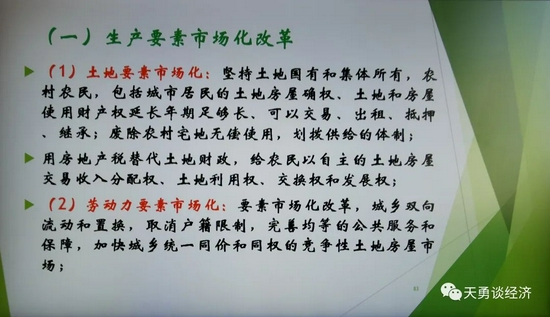 （一）生产要素市场化改革
（1）土地要素市场化：坚持土地国有和集体所有，农
村农民，包括城市居民的土地房屋确权、土地和房屋
使用财产权延长年期足够长、可以交易、出租、抵押
、继承；废除农村宅地无偿使用，划拨供给的体制；
用房地产税替代土地财政，给农民以自主的土地房屋
交易收入分配权、土地利用权、交换权和发展权；
（2）劳动力要素市场化：要素市场化改革，城乡双向
流动和置换，取消户籍限制，完善均等的公共服务和
保障，加快城乡统一同价和同权的竞争性土地房屋市
场；
天勇谈经济